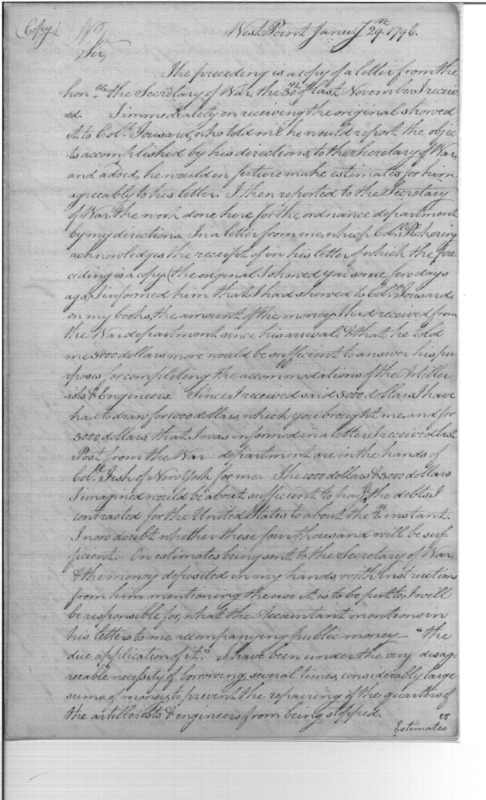 (Copy) West Point Janury 29th 1796.
Sir,
The preceding is a copy of a letter from the
honble the Secretary of War, the 30th of last November I receiv
ed. I immediately on receiving the original showed
it to Colo. Tousard, who told me he would report the objec
ts accomplished by his directions, to the Secretary of War,
and added, he would in future make estimates for him
agreeable to his letter. I then reported to the Secretary
of War the work done here for the ordnance department
by my directions. In a letter from me which Colo. Pickering
acknowledges the receipt of in his letter of which the pre
ceding is a copy (the original I showed you some few days
ago) I informed him that I had showed to Colo. Tousard
on my books, the amount of the money I had received from
the War department since his arrival, & that he told
me 3000 dollars more would be sufficient to answer his pur
poses for completing the accommodations of the Artiller
ists & Engineers. Since I received said 3000 dollars I have
had to draw for 1000 dollars which you brought me and for
3000 dollars that I was informed in a letter I received last
Post from the War department are in the hands of
Colo. Fish of New York for me. The 1000 dollars & 3000 dollars
I imagined would be about sufficient to pay the debts I
contracted for the United States to about the instant.
I now doubt whether these four thousand will be suf
ficient. On estimates being sent to the Secretary of War
& the money deposited in my hands with instructions
from him mentioning the use it is to be put to, I will
be responsible for, what the Accountant mentions in
his letters to me accompanying public money "the
due application of it." I have been under the very disag
reeable necessity of borrowing several times, considerably large
sums of money to prevent the repairing of the quarters of
the artillerists & engineers from being stopped.
Estimates